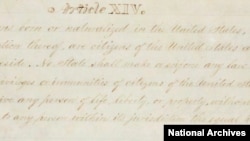 Article XIV.
born or naturalized in the United States,
thereof, are citizens of the United States
reside. No State shall make or enforce any law
or immunities of citizens of the United
any person of life, liberty, or property, without
to any person within its jurisdiction the equal
National Archives